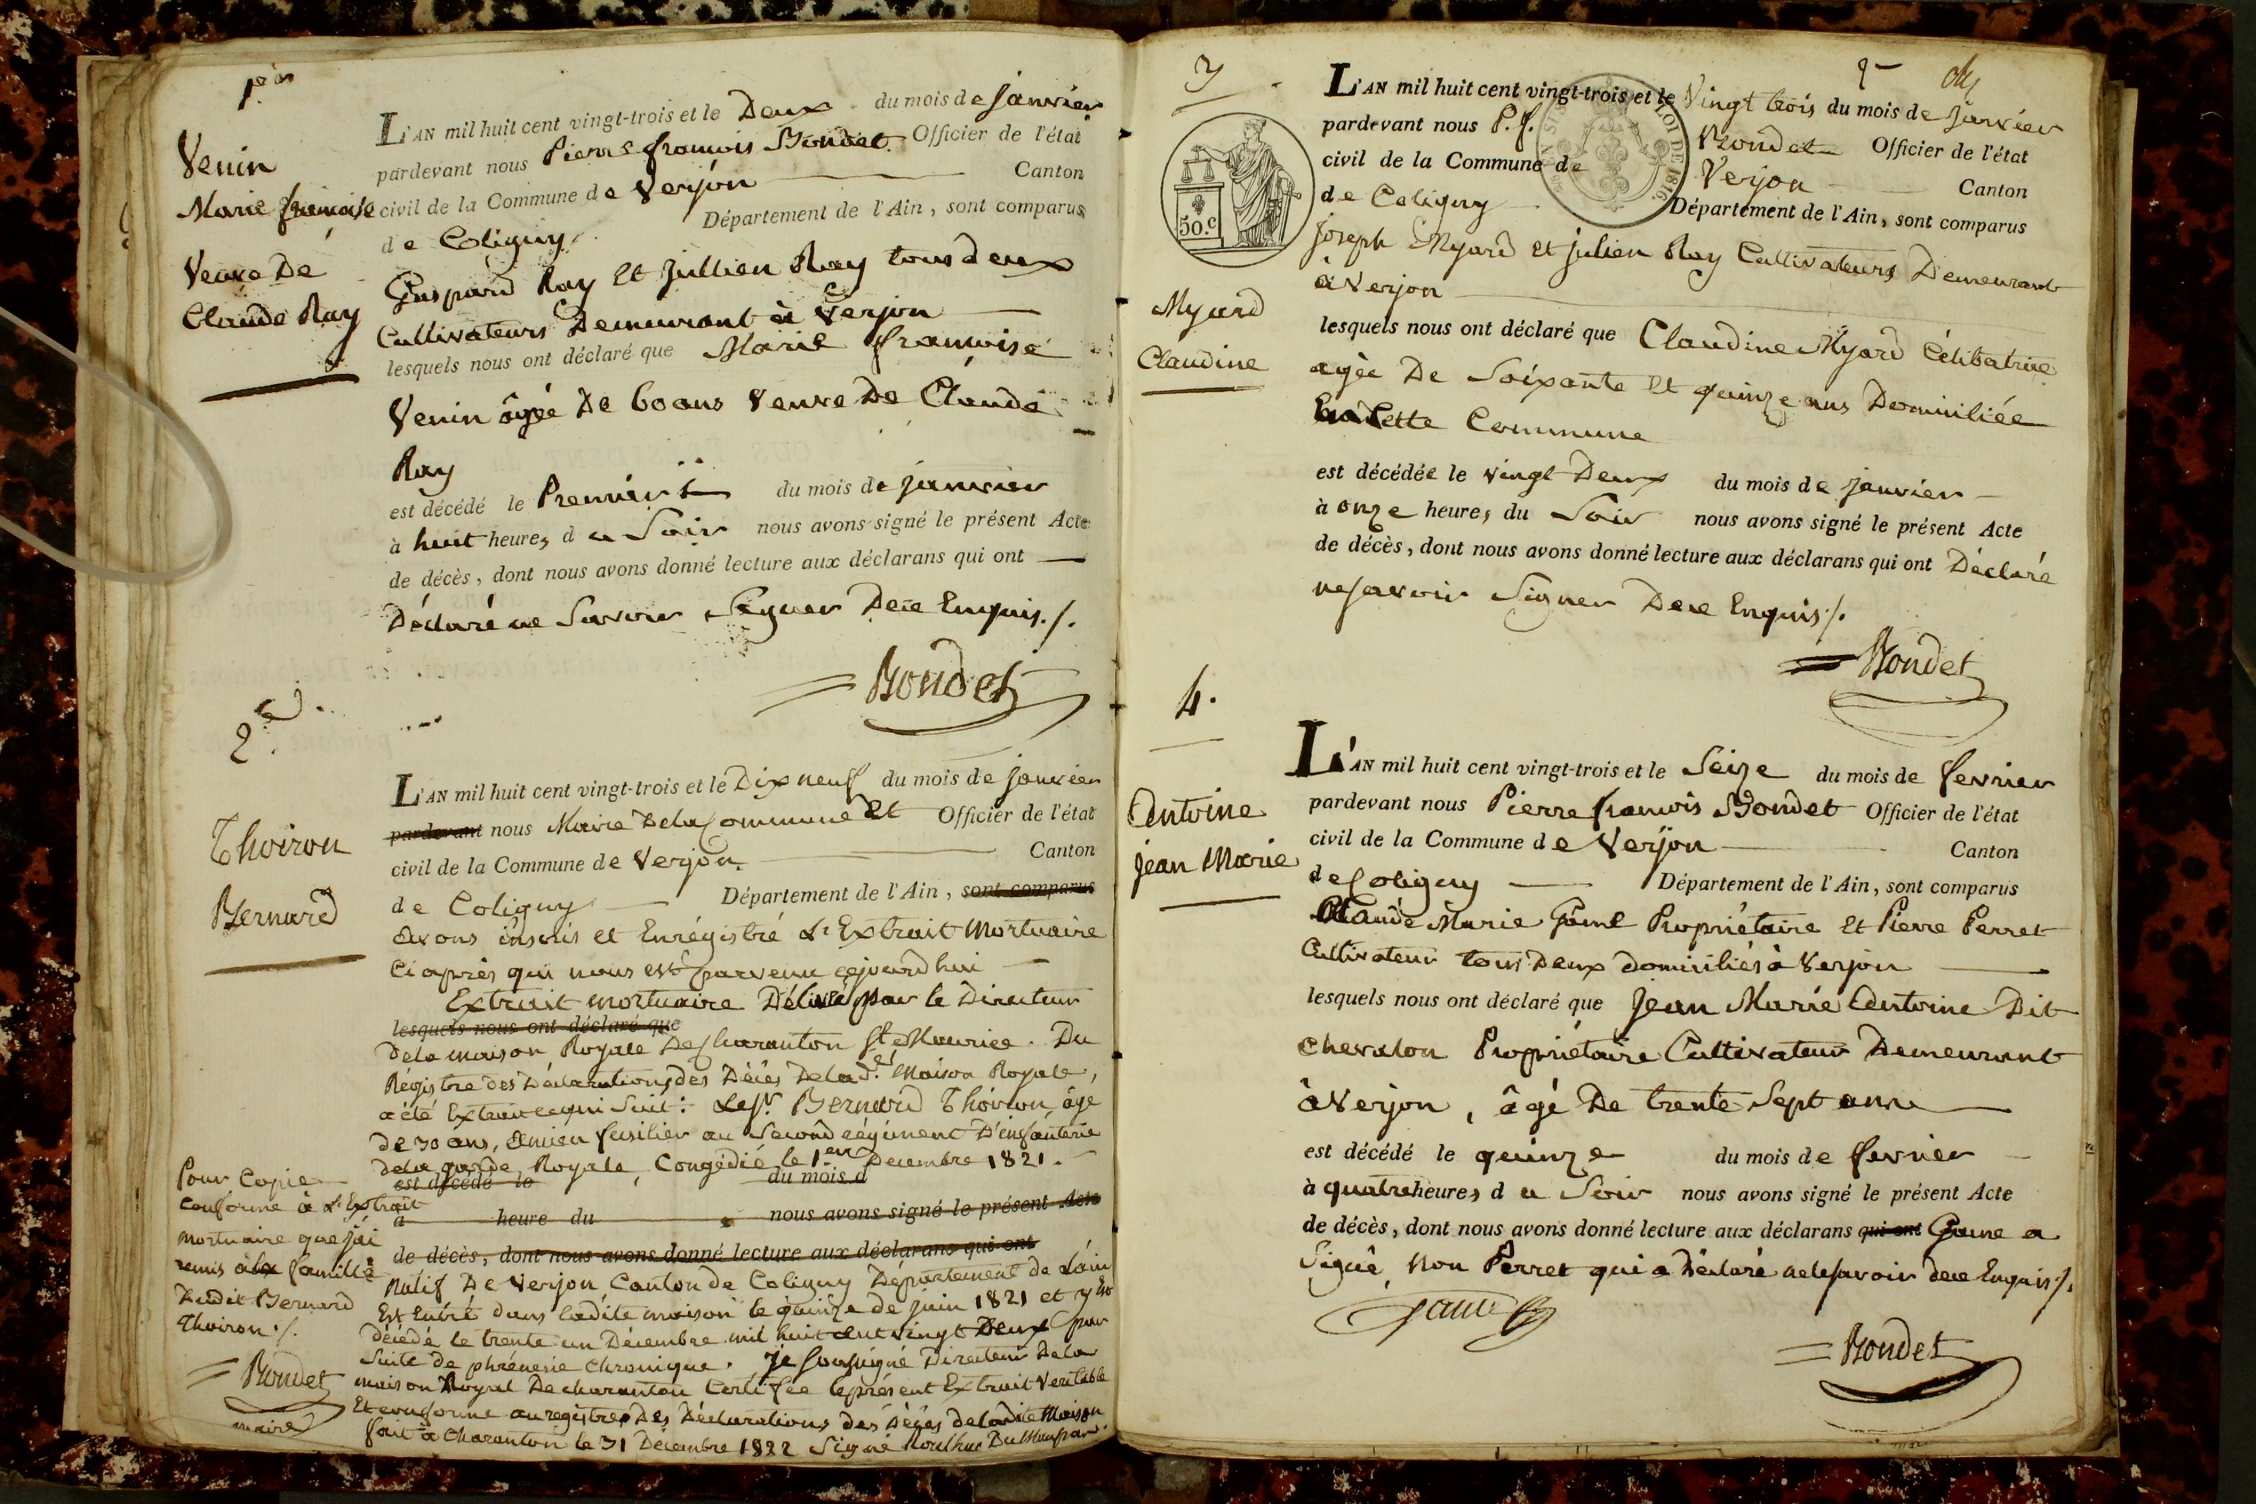 1er
Venin
Marie françoise
Veuve De
Claude Ray
L'AN mil huit cent vingt-trois et le Deux du mois de janvier
pardevant nous Pierre françois Bondet Officier de l'état
civil de la Commune de Verjon Canton
de Coligny Département de l'Ain, sont comparus
Gaspard Ray Et Jullien Ray tous deux
Cultivateurs Demeurant à Verjon
lesquels nous ont déclaré que Marie françoise
Venin âgée De 60 ans Veuve De Claude
Ray
est décédé le Premier du mois de janvier
à huit heures du Soir nous avons signé le présent Acte
de décès, dont nous avons donné lecture aux déclarans qui ont
Déclaré ne Savoir Signer De ce Enquis ./.
Bondet
2e
Thoiron
Bernard
L'AN mil huit cent vingt-trois et le Dix neuf du mois de janvier
pardevant nous Maire De la Commune Et Officier de l'état
civil de la Commune de Verjon Canton
de Coligny Département de l'Ain, sont comparus
Avons inscris et Enrégistré L'Extrait Mortuaire
Ci après qui nous est parvenu cejourd'hui
Extrait mortuaire Délivré par le Directeur
lesquels nous ont déclaré que
De la maison Royale De Charanton St Maurice. Du
Régistre des Déclarations des Décès De la d.e Maison Royale,
a été Extrait ce qui Suit: Le Sr. Bernard Thoiron, âge
de 30 ans, Ancien fusilier au Second régiment D'infanterie
de la garde Royale, Congédié le 1er Decembre 1821.
est décédé le du mois d
à heure du nous avons signé le présent Acte
de décès, dont nous avons donné lecture aux déclarans qui ont
Natif De Verjon Canton de Coligny Département de L'ain
Est Entré dans ladite maison le quinze de juin 1821 et y Est
décédé le trente un Décembre mil huit cent vingt Deux par
Suite de phrénesie Chronique. je Soussigné Directeur De la
maison Royal De charanton Certifie le présent Extrait Veritable
Et conforme au registre Des Déclarations des Décès de ladite Maison
fait à Charanton le 31 Décembre 1822 Signé
Pour Copie
Conforme à L'Extrait
mortuaire que j'ai
remis à la famille
Dudit Bernard
Thoiron ./.
Bondet
maire
3
Myard
Claudine
50.c
LOI DE 1816.
L'AN mil huit cent vingt-trois et le Vingt trois du mois de janvier
pardevant nous P. f. Bondet Officier de l'état
civil de la Commune de Verjon Canton
de Coligny Département de l'Ain, sont comparus
Joseph Myard et julien Ray Cultivateurs Demeurant
à Verjon
lesquels nous ont déclaré que Claudine Myard Célibatrice
agée De Soixante Et quinze ans Domiciliée
Cette Commune
est décédée le vingt Deux du mois de janvier
à onze heures du Soir nous avons signé le présent Acte
de décès, dont nous avons donné lecture aux déclarans qui ont Déclaré
ne savoir Signer De ce Enquis ./.
Bondet
4.
Antoine
jean Marie
L'AN mil huit cent vingt-trois et le Seize du mois de fevrier
pardevant nous Pierre françois Bondet Officier de l'état
civil de la Commune de Verjon Canton
de Coligny Département de l'Ain, sont comparus
Claude Marie Game Propriétaire Et Pierre Perret
Cultivateur tous Deux domiciliés à Verjon
lesquels nous ont déclaré que Jean Marie Antoine Dit
Chevalon Propriétaire Cultivateur Demeurant
à Verjon, âgé De trente Sept ans
est décédé le quinze du mois de fevrier
à quatre heures du Soir nous avons signé le présent Acte
de décès, dont nous avons donné lecture aux déclarans qui ont Game a
Signé, Non Perret qui a Déclaré ne le savoir de ce Enquis ./.
Game
Bondet